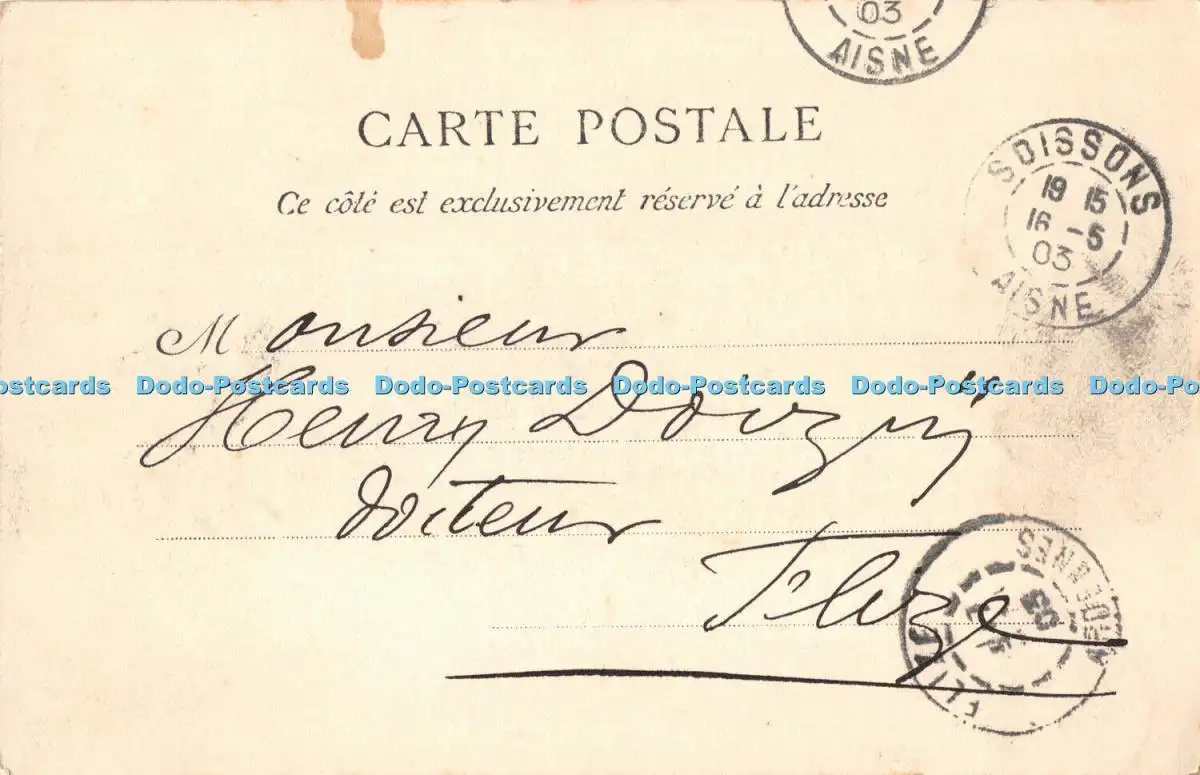 03
AISNE
CARTE POSTALE
SOISSONS
19 15
16 -5
03
AISNE
Ce côté est exclusivement réservé à l'adresse
Monsieur
Postcards Dodo-Postcards Dodo-Postcards Dodo-Postcards Dodo-Postcards Dodo-Po
Henry
docteur
Flize
ARDENNES
03